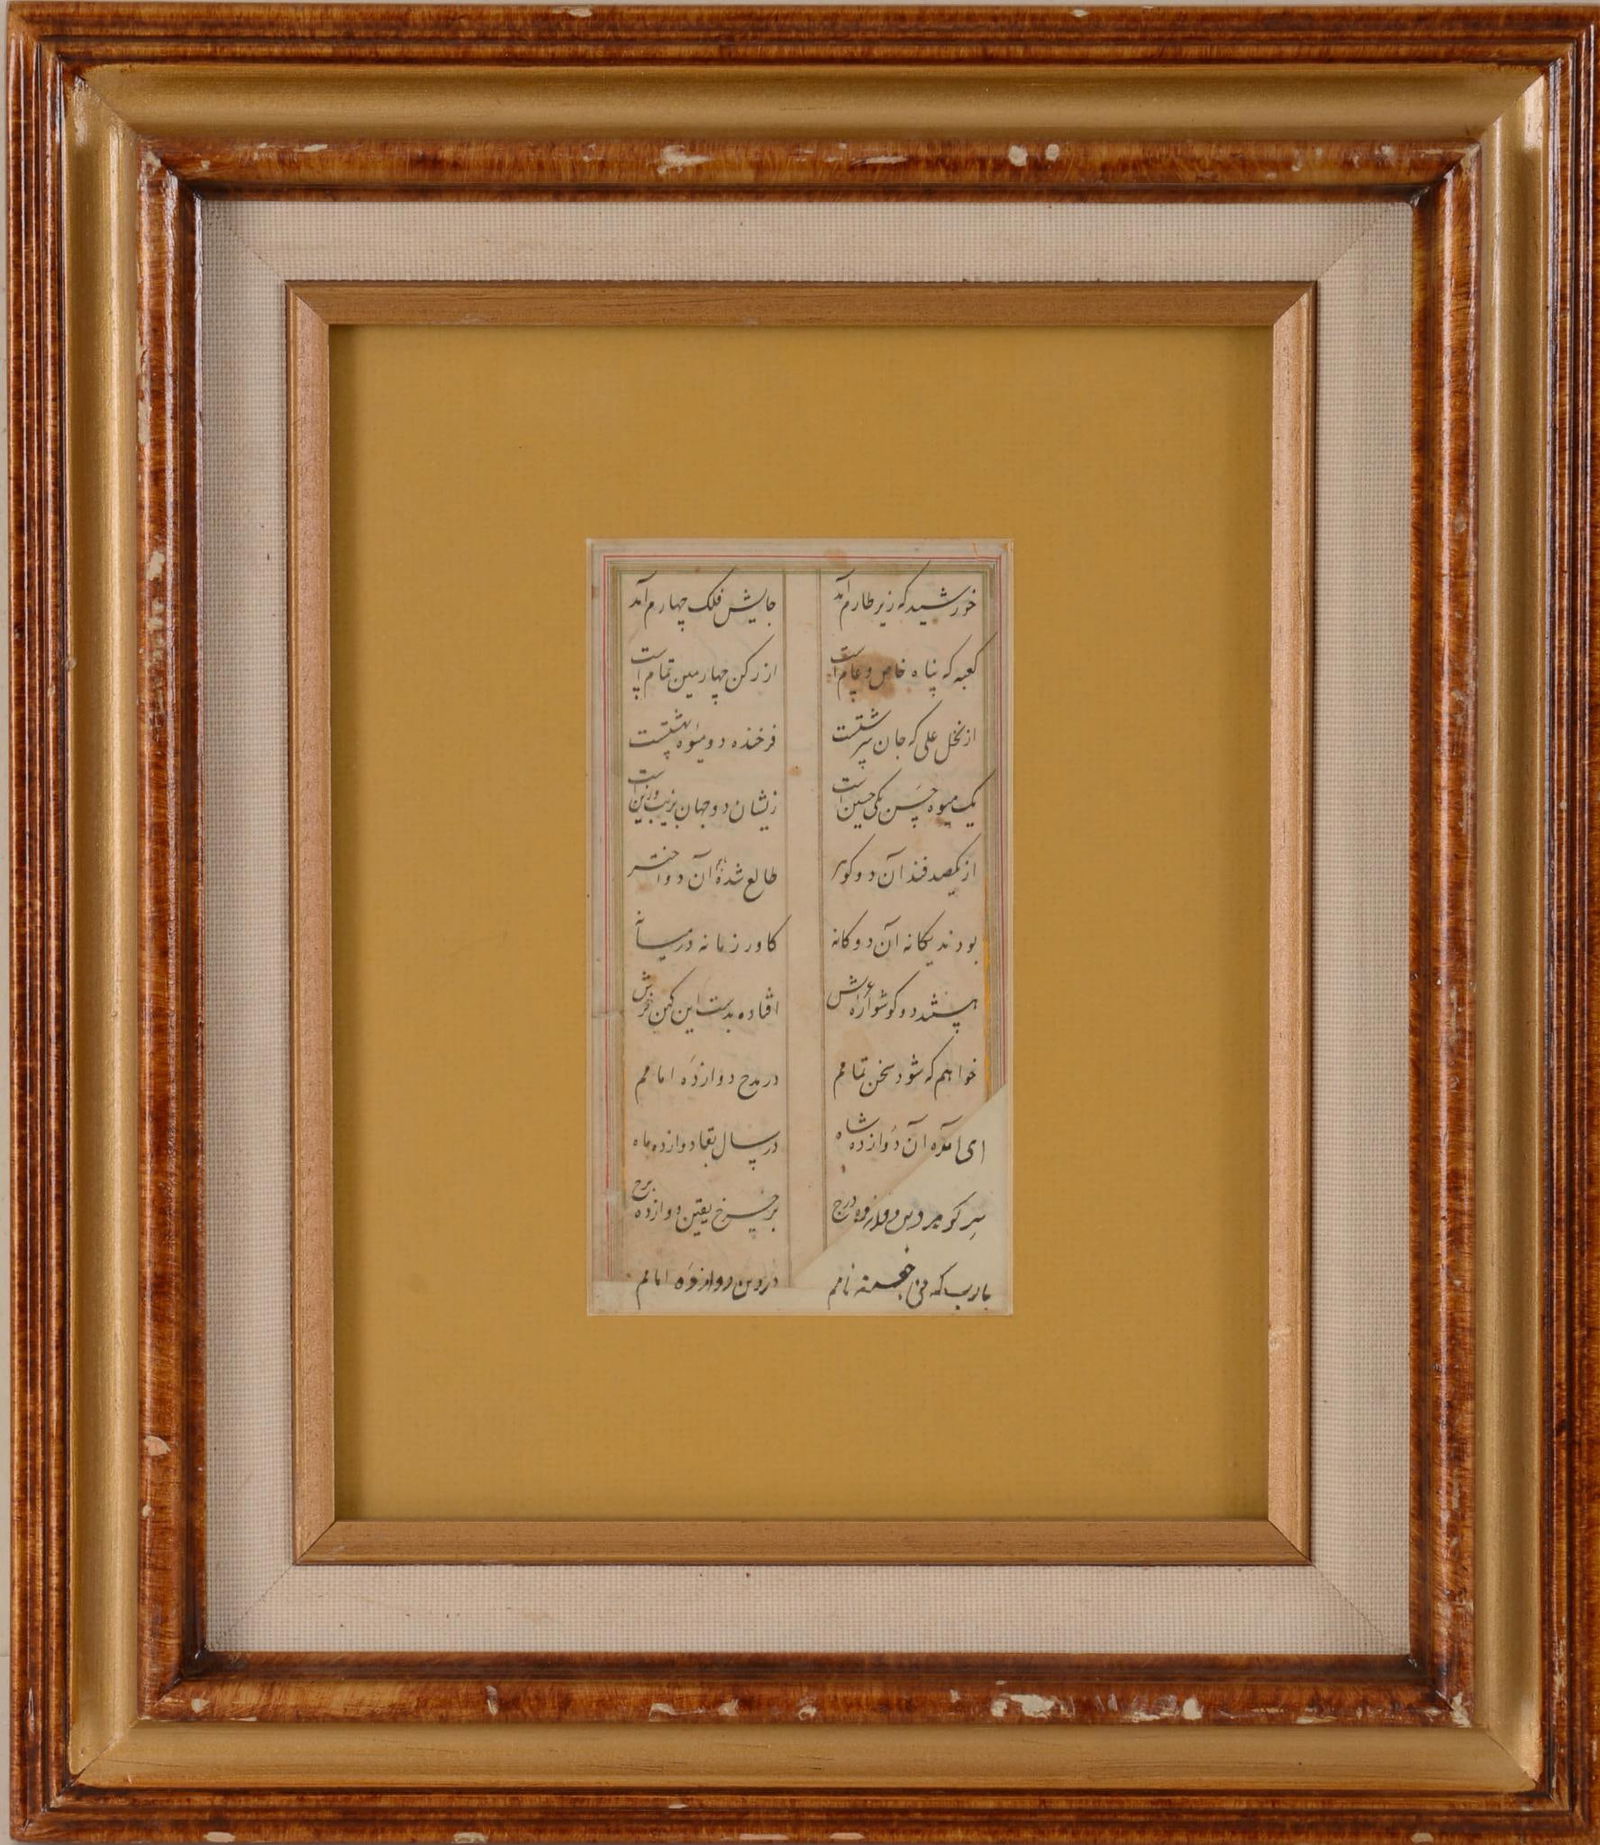 خورشید که زیر طارم آمد جایش فلک چهارم آمد
کعبه که پناه خاص و عام است از رکن چهارمین تمام است
از نخل علی که جان سرشتست فرخنده دو میوه بهشتست
یک میوه حسن یکی حسین است زیشان دو جهان بزیب و زین است
از یکصدفند آن دو گوهر طالع شده آن دو اختر
بودند یگانه آن دوگانه کاورد زمانه در میانه
هستند دو گوشواره عرش افتاده بدست این کهن فرش
خواهم که شود سخن تمامم در مدح دوازده امامم
ای آمده آن دوازده شاه در سال بقا دوازده ماه
دوازده درج بر چرخ یقین دوازده برج
یارب که خجسته نامم در دین دوازده امامم